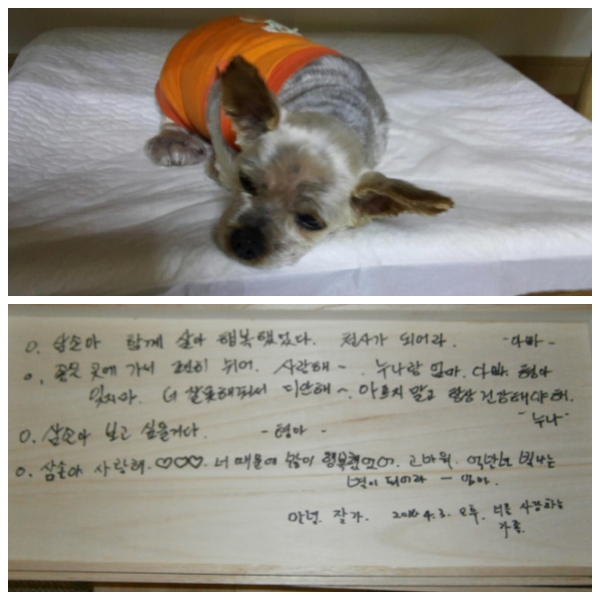 o. 삼손아 함께 살아 행복했었다. 천사가 되어라. -아빠-
o. 좋은 곳에 가서 편히 쉬어. 사랑해~. 누나랑 엄마. 아빠. 형아
잊지마. 더 잘 못해줘서 미안해~. 아프지 말고 항상 건강해야해.
-누나-
o. 삼손아 보고 싶을거다. -형아-
o. 삼손아 사랑해.♡♡♡. 너 때문에 많이 행복했었어. 고마워. 빛나는
별이 되어라 - 엄마.
안녕. 잘가. 4.3. 오후. 너를 사랑하는
가족.